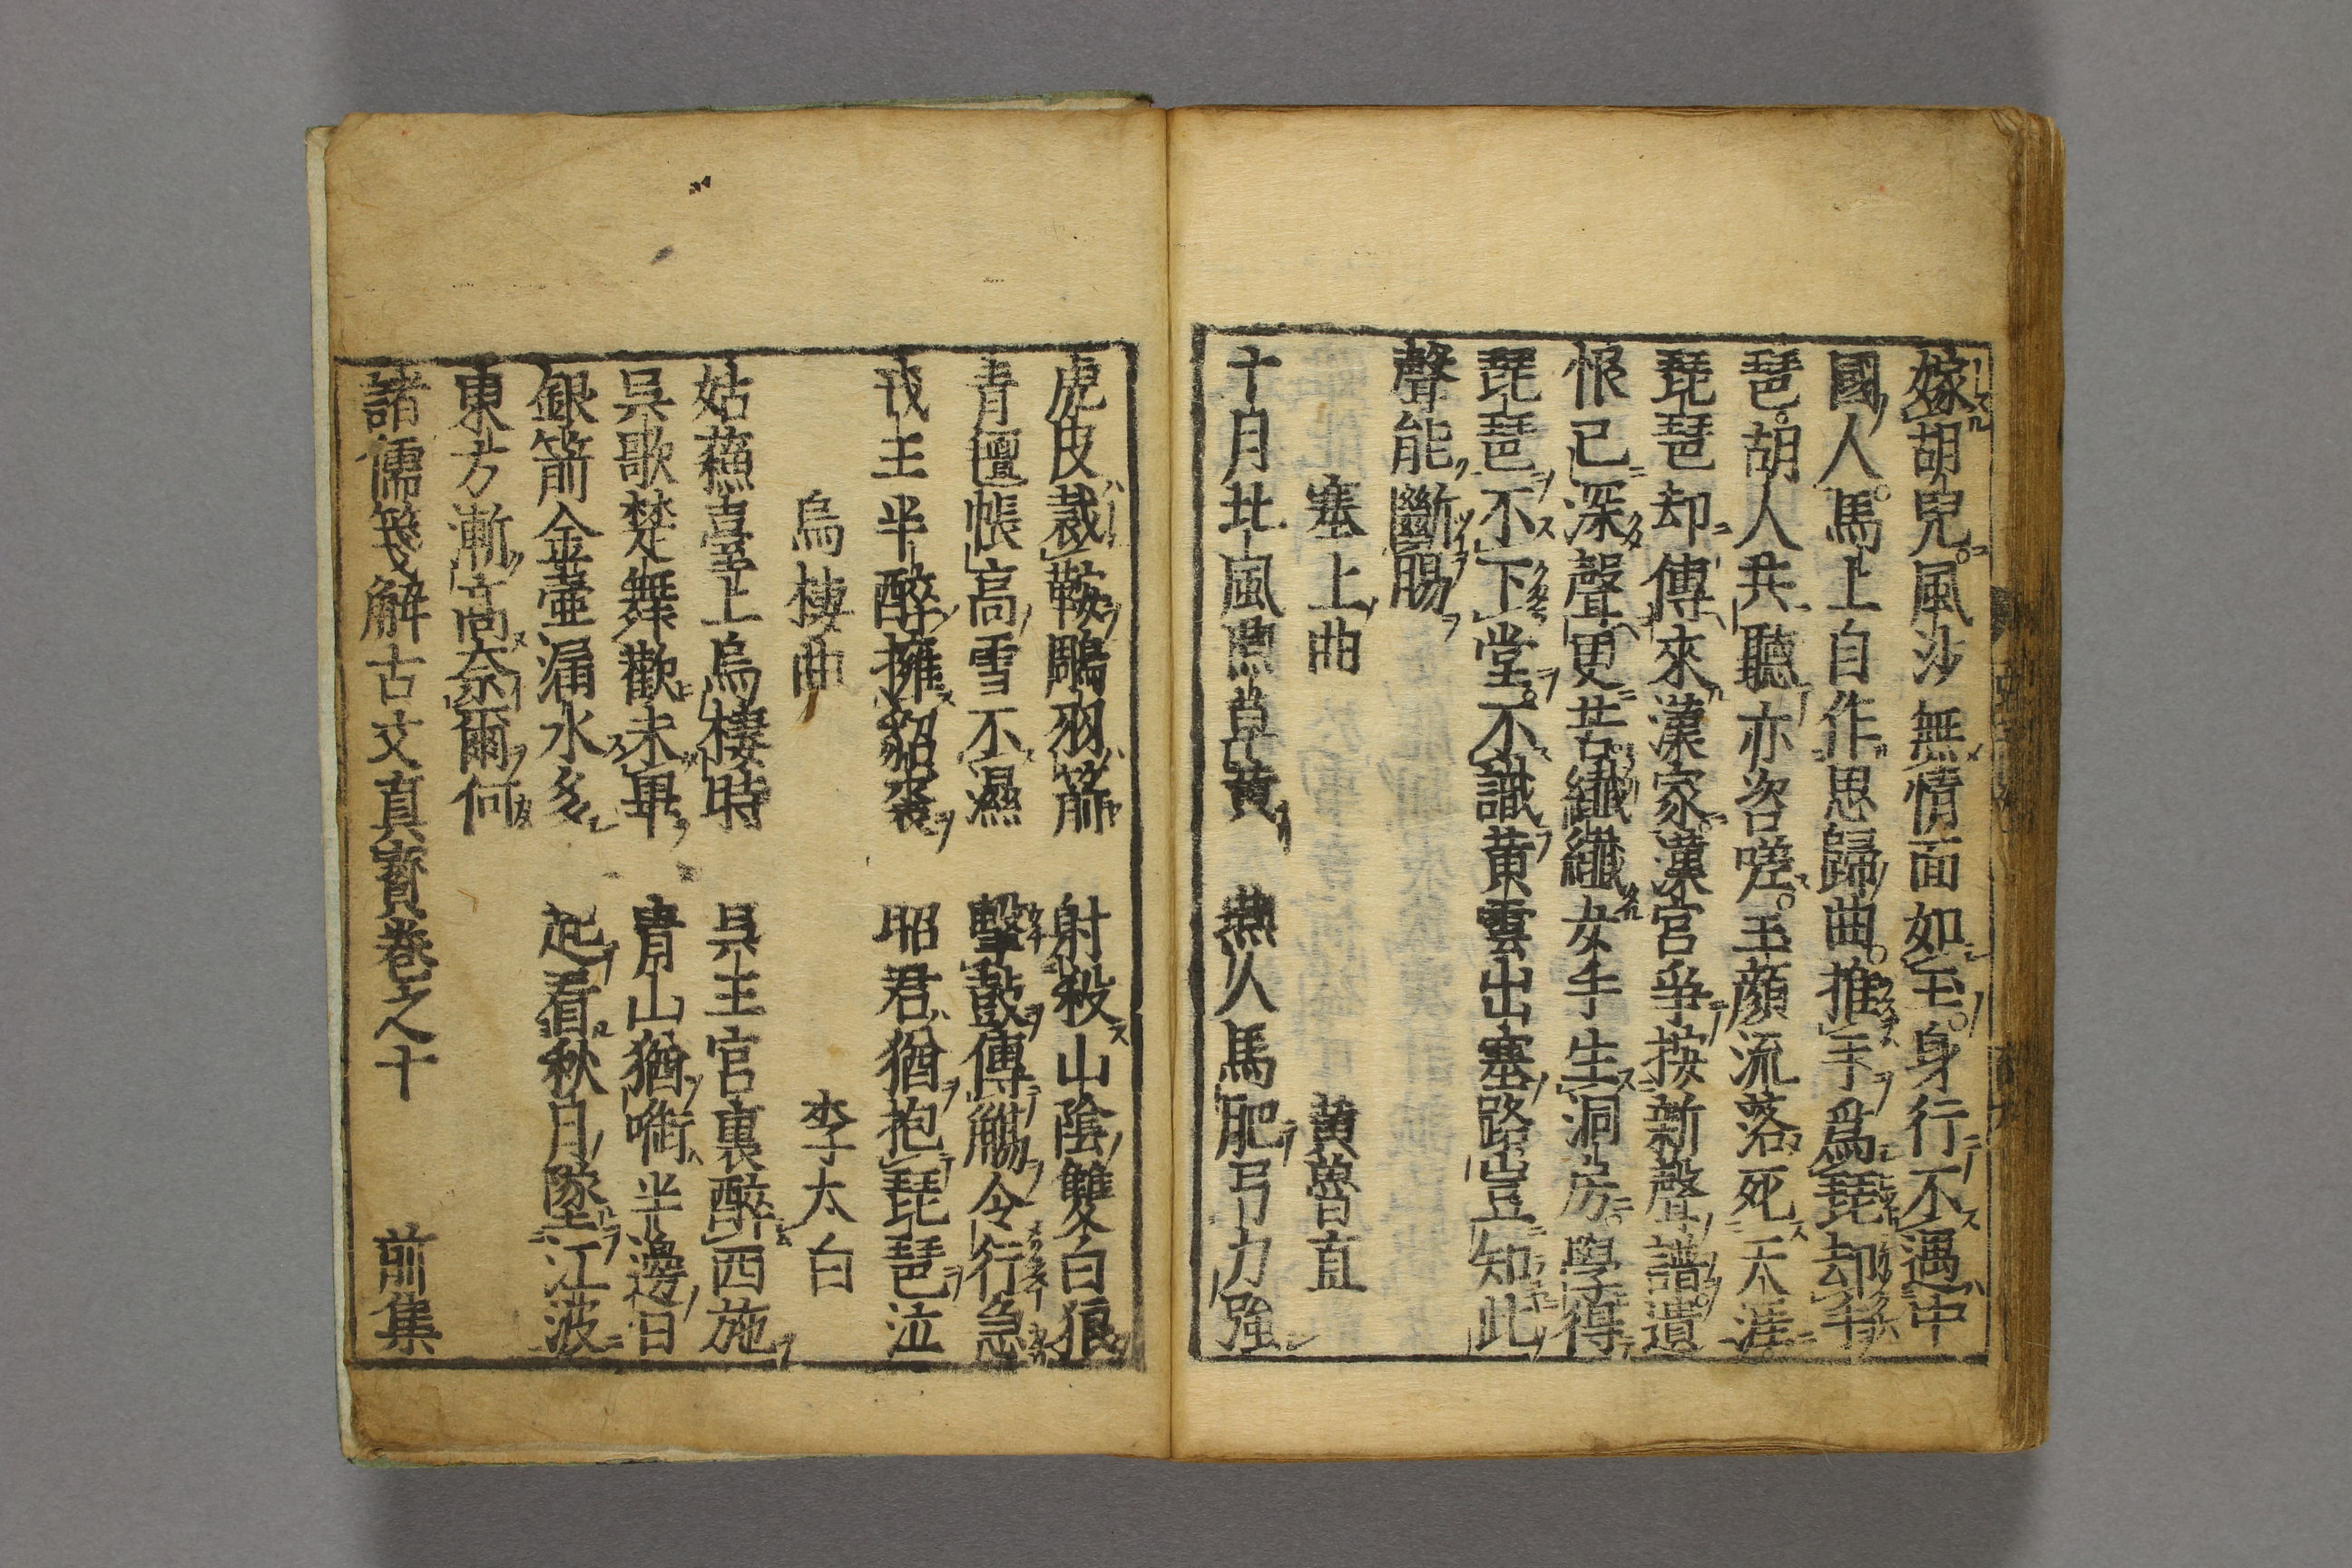 嫁胡兒風沙無情面如玉身行不遇中
國人馬上自作思歸曲推手爲琵却手
琶胡人共聽亦咨嗟玉顔流落死天涯
琵琶却傳來漢家漢宮爭按新聲譜遺
恨已深聲更苦纎纎女手生洞房學得
琵琶不下堂不識黄雲出塞路豈知此
聲能斷腸
塞上曲 黄魯直
十月北風燕草黄 燕人馬肥弓力強
虎皮裁鞍鵰羽箭 射殺山陰雙白狼
青氊帳高雪不濕 擊鼓傳觴令行急
戎王半醉擁貂裘 昭君猶抱琵琶泣
烏棲曲 李太白
姑蘓臺上烏棲時 吳王宮裏醉西施
吳歌楚舞歡未畢 青山猶啣半邊日
銀箭金壷漏水多 起看秋月墜江波
東方漸高奈爾何
諸儒箋解古文真寳巻之十 前集